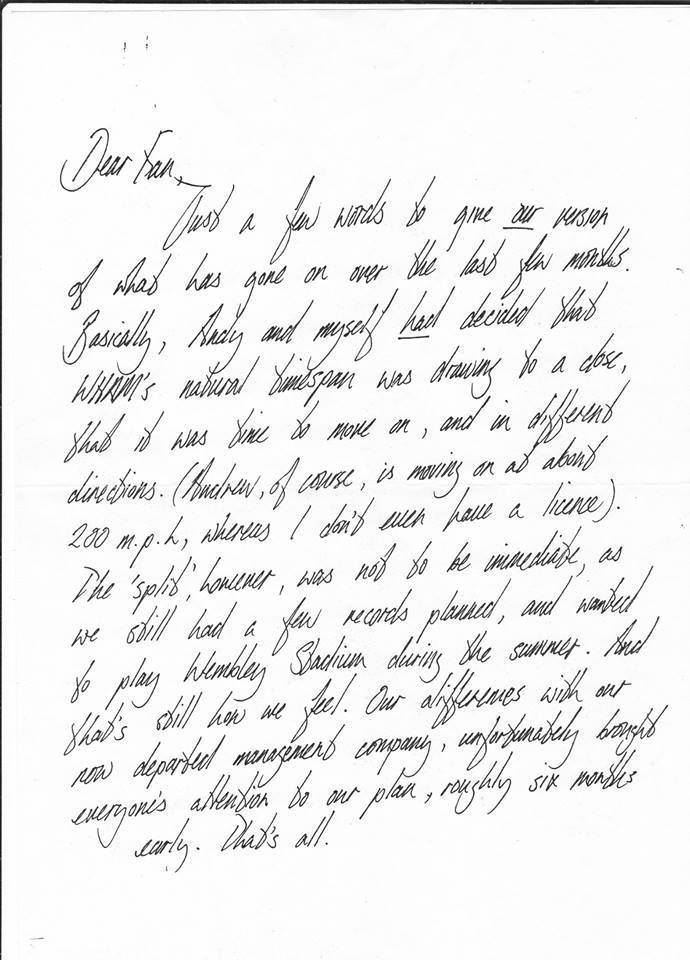 Dear Fan,
Just a few words to give our version
of what has gone on over the last few months.
Basically, Andy and myself had decided that
WHAM's natural timespan was drawing to a close,
that it was time to move on, and in different
directions. (Andrew, of course, is moving on at about
200 m.p.h, whereas I don't even have a licence).
The 'split', however, was not to be immediate, as
we still had a few records planned, and wanted
to play Wembley Stadium during the summer. And
that's still how we feel. Our differences with our
now departed management company, unfortunately brought
everyone's attention to our plan, roughly six months
early. That's all.